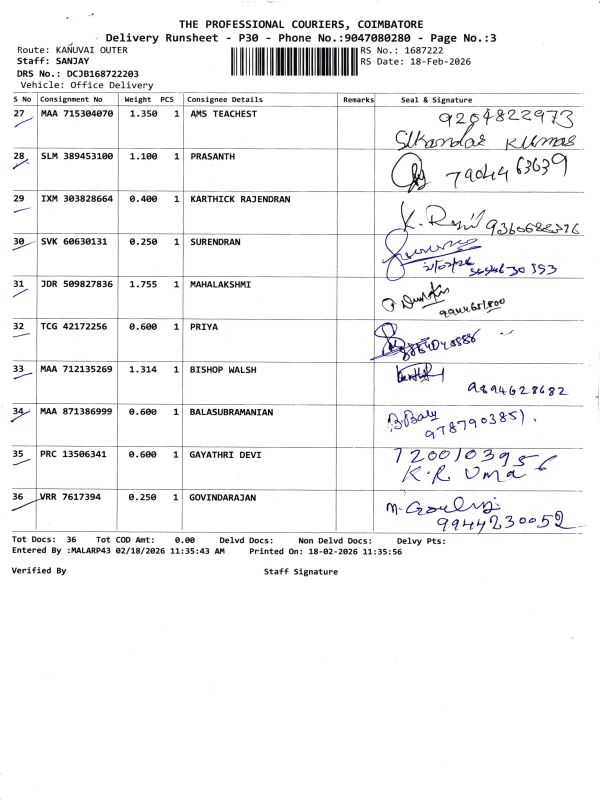 THE PROFESSIONAL COURIERS, COIMBATORE
Delivery Runsheet - P30 - Phone No.:9047080280 - Page No.:3
Route: KANUVAI OUTER
RS No.: 1687222
Staff: SANJAY
RS Date: 18-Feb-2026
DRS No.: DCJB168722203
Vehicle: Office Delivery
S No Consignment No Weight PCS Consignee Details Remarks Seal & Signature
27 MAA 715304070 1.350 1 AMS TEACHEST 9204822973
Sikandar Kumar
28 SLM 389453100 1.100 1 PRASANTH 7904463639
29 IXM 303828664 0.400 1 KARTHICK RAJENDRAN
30 SVK 60630131 0.250 1 SURENDRAN
31 JDR 509827836 1.755 1 MAHALAKSHMI
32 TCG 42172256 0.600 1 PRIYA
33 MAA 712135269 1.314 1 BISHOP WALSH
9894628682
34 MAA 871386999 0.600 1 BALASUBRAMANIAN B. Balu
9787903851.
35 PRC 13506341 0.600 1 GAYATHRI DEVI 7200103956
K.R Uma
36 VRR 7617394 0.250 1 GOVINDARAJAN
9944230052
Tot Docs: 36 Tot COD Amt: 0.00 Delvd Docs: Non Delvd Docs: Delvy Pts:
Entered By :MALARP43 02/18/2026 11:35:43 AM Printed On: 18-02-2026 11:35:56
Verified By Staff Signature